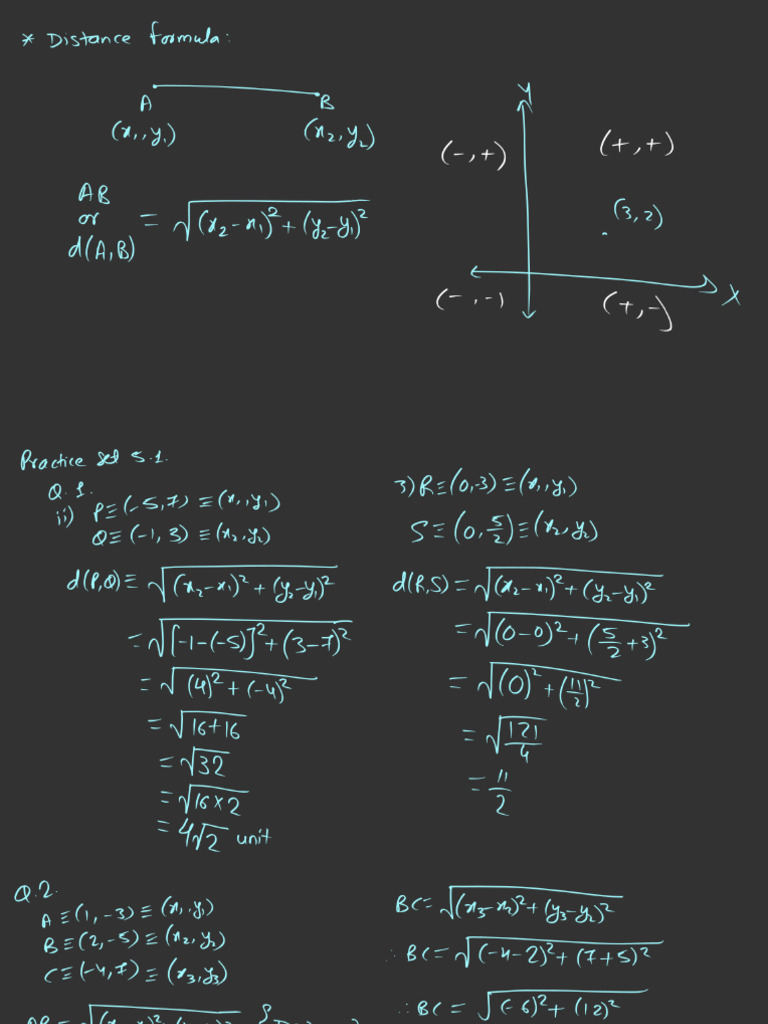 * Distance formula:
A B
(x₁, y₁) (x₂, y₂)
AB
or
d(A,B) = √(x₂-x₁)²+(y₂-y₁)²
Y
(-,+) (+,+)
(3,2)
X
(-,-) (+,-)
Practice set 5.1.
Q.1.
ii) P≡(-5,7) ≡(x₁, y₁)
Q≡(-1,3) ≡(x₂, y₂)
d(P,Q)= √(x₂-x₁)²+(y₂-y₁)²
=√[-1-(-5)]²+(3-7)²
=√(4)²+(-4)²
=√16+16
=√32
=√16×2
=4√2 unit
3) R≡(0,-3)≡(x₁, y₁)
S≡(0,5/2)≡(x₂, y₂)
d(R,S)=√(x₂-x₁)²+(y₂-y₁)²
=√(0-0)²+(5/2+3)²
=√(0)²+(11/2)²
=√121/4
=11/2
Q.2.
A≡(1,-3)≡(x₁, y₁)
B≡(2,-5)≡(x₂, y₂)
C≡(-4,7)≡(x₃, y₃)
BC=√(x₃-x₂)²+(y₃-y₂)²
∴ BC=√(-4-2)²+(7+5)²
∴ BC=√(-6)²+(12)²